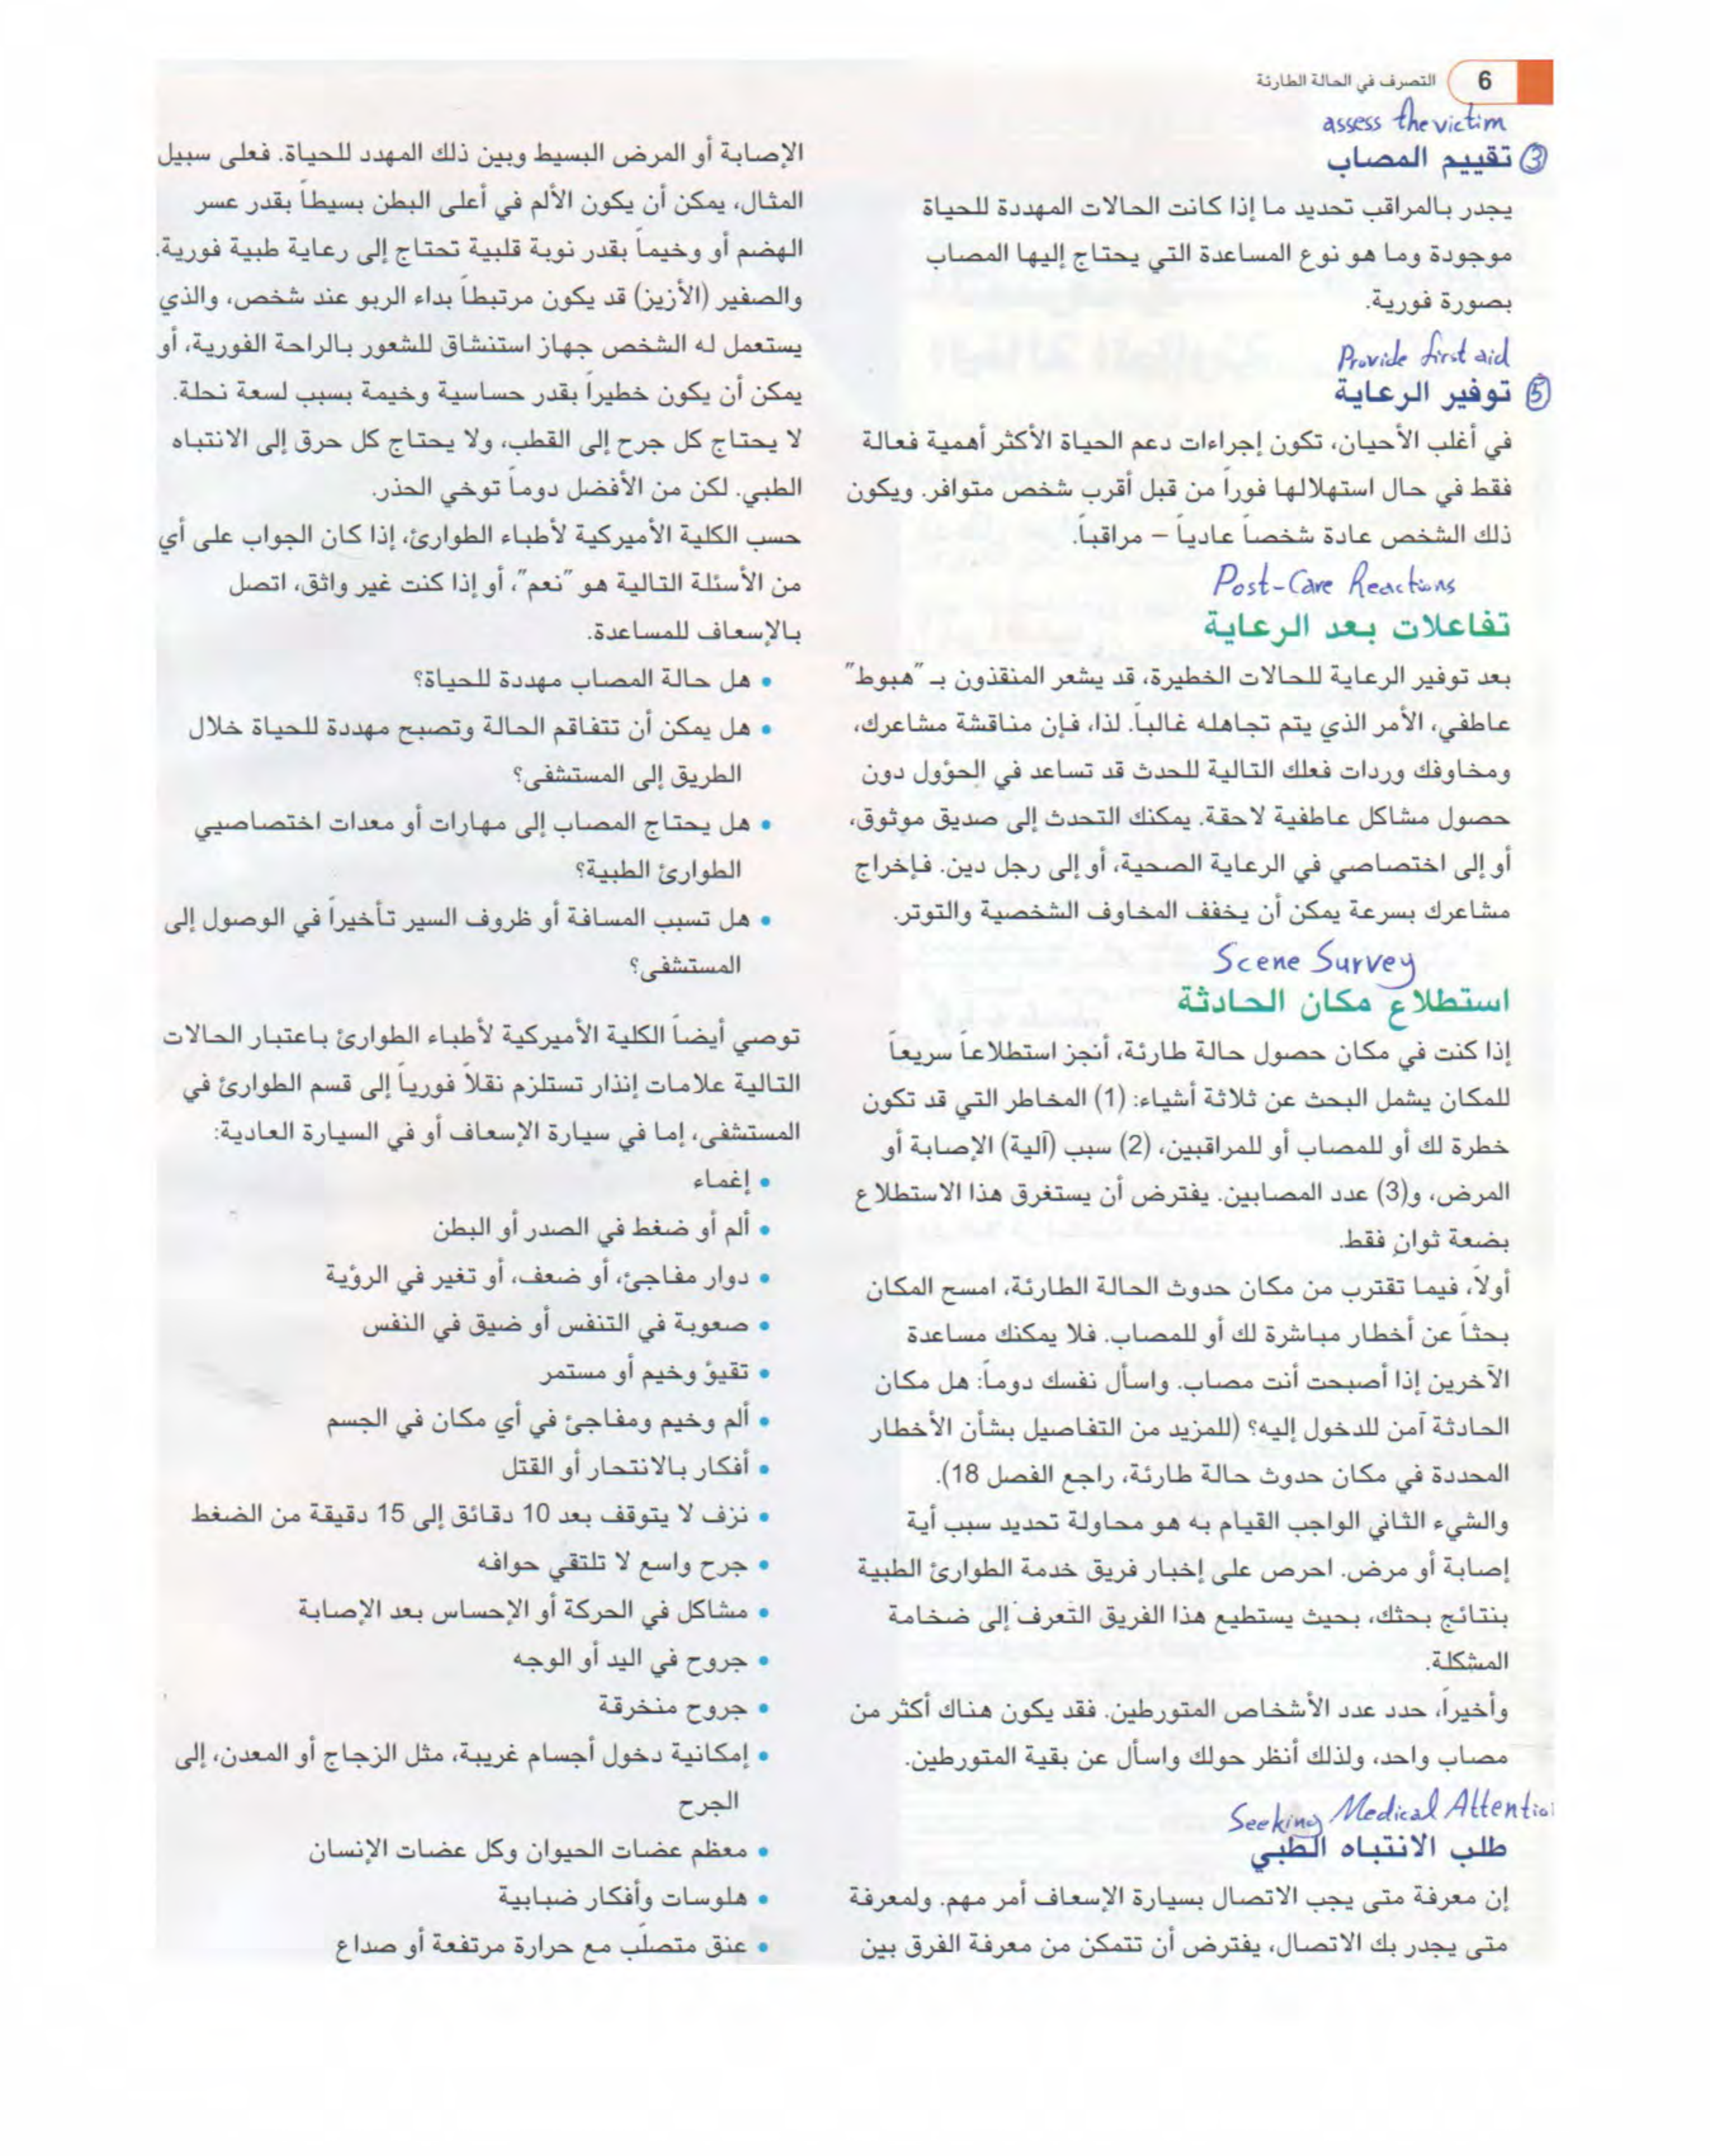 6 التصرف في الحالة الطارئة
assess the victim
③ تقييم المصاب
يجدر بالمراقب تحديد ما إذا كانت الحالات المهددة للحياة
موجودة وما هو نوع المساعدة التي يحتاج إليها المصاب
بصورة فورية.
Provide first aid
⑤ توفير الرعاية
في أغلب الأحيان، تكون إجراءات دعم الحياة الأكثر أهمية فعالة
فقط في حال استهلالها فوراً من قبل أقرب شخص متوافر. ويكون
ذلك الشخص عادة شخصاً عادياً – مراقباً.
Post-Care Reactions
تفاعلات بعد الرعاية
بعد توفير الرعاية للحالات الخطيرة، قد يشعر المنقذون بـ "هبوط"
عاطفي، الأمر الذي يتم تجاهله غالباً. لذا، فإن مناقشة مشاعرك،
ومخاوفك وردات فعلك التالية للحدث قد تساعد في الحؤول دون
حصول مشاكل عاطفية لاحقة. يمكنك التحدث إلى صديق موثوق،
أو إلى اختصاصي في الرعاية الصحية، أو إلى رجل دين. فإخراج
مشاعرك بسرعة يمكن أن يخفف المخاوف الشخصية والتوتر.
Scene Survey
استطلاع مكان الحادثة
إذا كنت في مكان حصول حالة طارئة، أنجز استطلاعاً سريعاً
للمكان يشمل البحث عن ثلاثة أشياء: (1) المخاطر التي قد تكون
خطرة لك أو للمصاب أو للمراقبين، (2) سبب (آلية) الإصابة أو
المرض، و(3) عدد المصابين. يفترض أن يستغرق هذا الاستطلاع
بضعة ثوانٍ فقط.
أولاً، فيما تقترب من مكان حدوث الحالة الطارئة، امسح المكان
بحثاً عن أخطار مباشرة لك أو للمصاب. فلا يمكنك مساعدة
الآخرين إذا أصبحت أنت مصاب. واسأل نفسك دوماً: هل مكان
الحادثة آمن للدخول إليه؟ (للمزيد من التفاصيل بشأن الأخطار
المحددة في مكان حدوث حالة طارئة، راجع الفصل 18).
والشيء الثاني الواجب القيام به هو محاولة تحديد سبب أية
إصابة أو مرض. احرص على إخبار فريق خدمة الطوارئ الطبية
بنتائج بحثك، بحيث يستطيع هذا الفريق التعرف إلى ضخامة
المشكلة.
وأخيراً، حدد عدد الأشخاص المتورطين. فقد يكون هناك أكثر من
مصاب واحد، ولذلك أنظر حولك واسأل عن بقية المتورطين.
Seeking Medical Attentio
طلب الانتباه الطبي
إن معرفة متى يجب الاتصال بسيارة الإسعاف أمر مهم. ولمعرفة
متى يجدر بك الاتصال، يفترض أن تتمكن من معرفة الفرق بين
الإصابة أو المرض البسيط وبين ذلك المهدد للحياة. فعلى سبيل
المثال، يمكن أن يكون الألم في أعلى البطن بسيطاً بقدر عسر
الهضم أو وخيماً بقدر نوبة قلبية تحتاج إلى رعاية طبية فورية.
والصفير (الأزيز) قد يكون مرتبطاً بداء الربو عند شخص، والذي
يستعمل له الشخص جهاز استنشاق للشعور بالراحة الفورية، أو
يمكن أن يكون خطيراً بقدر حساسية وخيمة بسبب لسعة نحلة.
لا يحتاج كل جرح إلى القطب، ولا يحتاج كل حرق إلى الانتباه
الطبي. لكن من الأفضل دوماً توخي الحذر.
حسب الكلية الأميركية لأطباء الطوارئ، إذا كان الجواب على أي
من الأسئلة التالية هو "نعم"، أو إذا كنت غير واثق، اتصل
بالإسعاف للمساعدة.
• هل حالة المصاب مهددة للحياة؟
• هل يمكن أن تتفاقم الحالة وتصبح مهددة للحياة خلال
الطريق إلى المستشفى؟
• هل يحتاج المصاب إلى مهارات أو معدات اختصاصيي
الطوارئ الطبية؟
• هل تسبب المسافة أو ظروف السير تأخيراً في الوصول إلى
المستشفى؟
توصي أيضاً الكلية الأميركية لأطباء الطوارئ باعتبار الحالات
التالية علامات إنذار تستلزم نقلاً فورياً إلى قسم الطوارئ في
المستشفى، إما في سيارة الإسعاف أو في السيارة العادية:
• إغماء
• ألم أو ضغط في الصدر أو البطن
• دوار مفاجئ، أو ضعف، أو تغير في الرؤية
• صعوبة في التنفس أو ضيق في النفس
• تقيؤ وخيم أو مستمر
• ألم وخيم ومفاجئ في أي مكان في الجسم
• أفكار بالانتحار أو القتل
• نزف لا يتوقف بعد 10 دقائق إلى 15 دقيقة من الضغط
• جرح واسع لا تلتقي حوافه
• مشاكل في الحركة أو الإحساس بعد الإصابة
• جروح في اليد أو الوجه
• جروح منخرقة
• إمكانية دخول أجسام غريبة، مثل الزجاج أو المعدن، إلى
الجرح
• معظم عضات الحيوان وكل عضات الإنسان
• هلوسات وأفكار ضبابية
• عنق متصلّب مع حرارة مرتفعة أو صداع